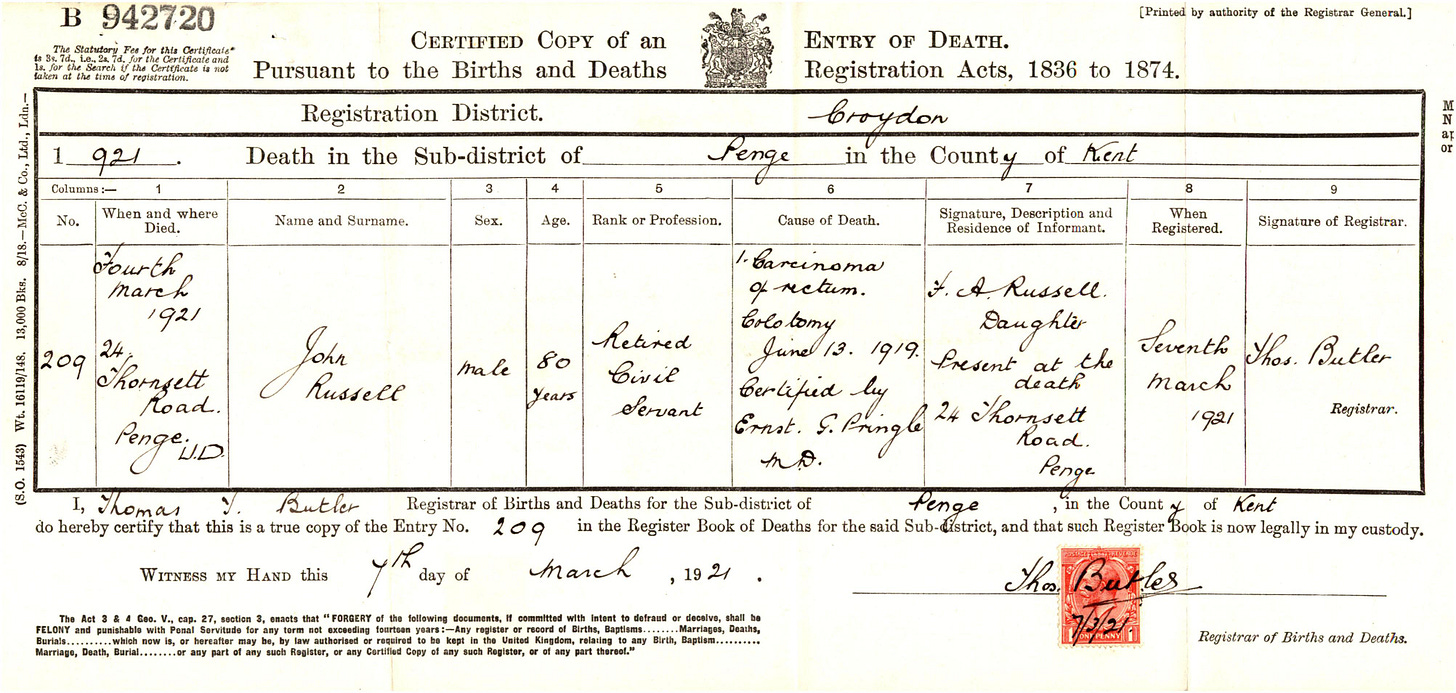 B 942720
[Printed by authority of the Registrar General.]
The Statutory Fee for this Certificate
is 3s. 7d., i.e., 2s. 7d. for the Certificate and
1s. for the Search if the Certificate is not
taken at the time of registration.
CERTIFIED COPY of an ENTRY OF DEATH.
Pursuant to the Births and Deaths Registration Acts, 1836 to 1874.
(S.O. 1543) Wt. 16119/148. 13,000 Bks. 8/18.—McC. & Co., Ltd., Ldn.—
Registration District. Croydon
1 921. Death in the Sub-district of Penge in the County of Kent
Columns:— 1 2 3 4 5 6 7 8 9
No.
When and where
Died.
Name and Surname.
Sex.
Age.
Rank or Profession.
Cause of Death.
Signature, Description and
Residence of Informant.
When
Registered.
Signature of Registrar.
209
Fourth
March
1921
24,
Thornsett
Road.
Penge.
U.D.
John
Russell
Male
80
years
Retired
Civil
Servant
1. Carcinoma
of rectum.
Colotomy
June 13. 1919.
Certified by
Ernst. G. Pringle
M.D.
F. A. Russell.
Daughter
Present at the
death
24 Thornsett
Road.
Penge
Seventh
March
1921
Thos. Butler
Registrar.
I, Thomas T. Butler Registrar of Births and Deaths for the Sub-district of Penge, in the County of Kent
do hereby certify that this is a true copy of the Entry No. 209 in the Register Book of Deaths for the said Sub-district, and that such Register Book is now legally in my custody.
WITNESS MY HAND this 7th day of March, 1921.
Thos. Butler
7/3/21
ONE PENNY
Registrar of Births and Deaths.
The Act 3 & 4 Geo. V., cap. 27, section 3, enacts that "FORGERY of the following documents, if committed with intent to defraud or deceive, shall be
FELONY and punishable with Penal Servitude for any term not exceeding fourteen years:—Any register or record of Births, Baptisms........Marriages, Deaths,
Burials..........which now is, or hereafter may be, by law authorised or required to be kept in the United Kingdom, relating to any Birth, Baptism..........
Marriage, Death, Burial........or any part of any such Register, or any Certified Copy of any such Register, or of any part thereof."